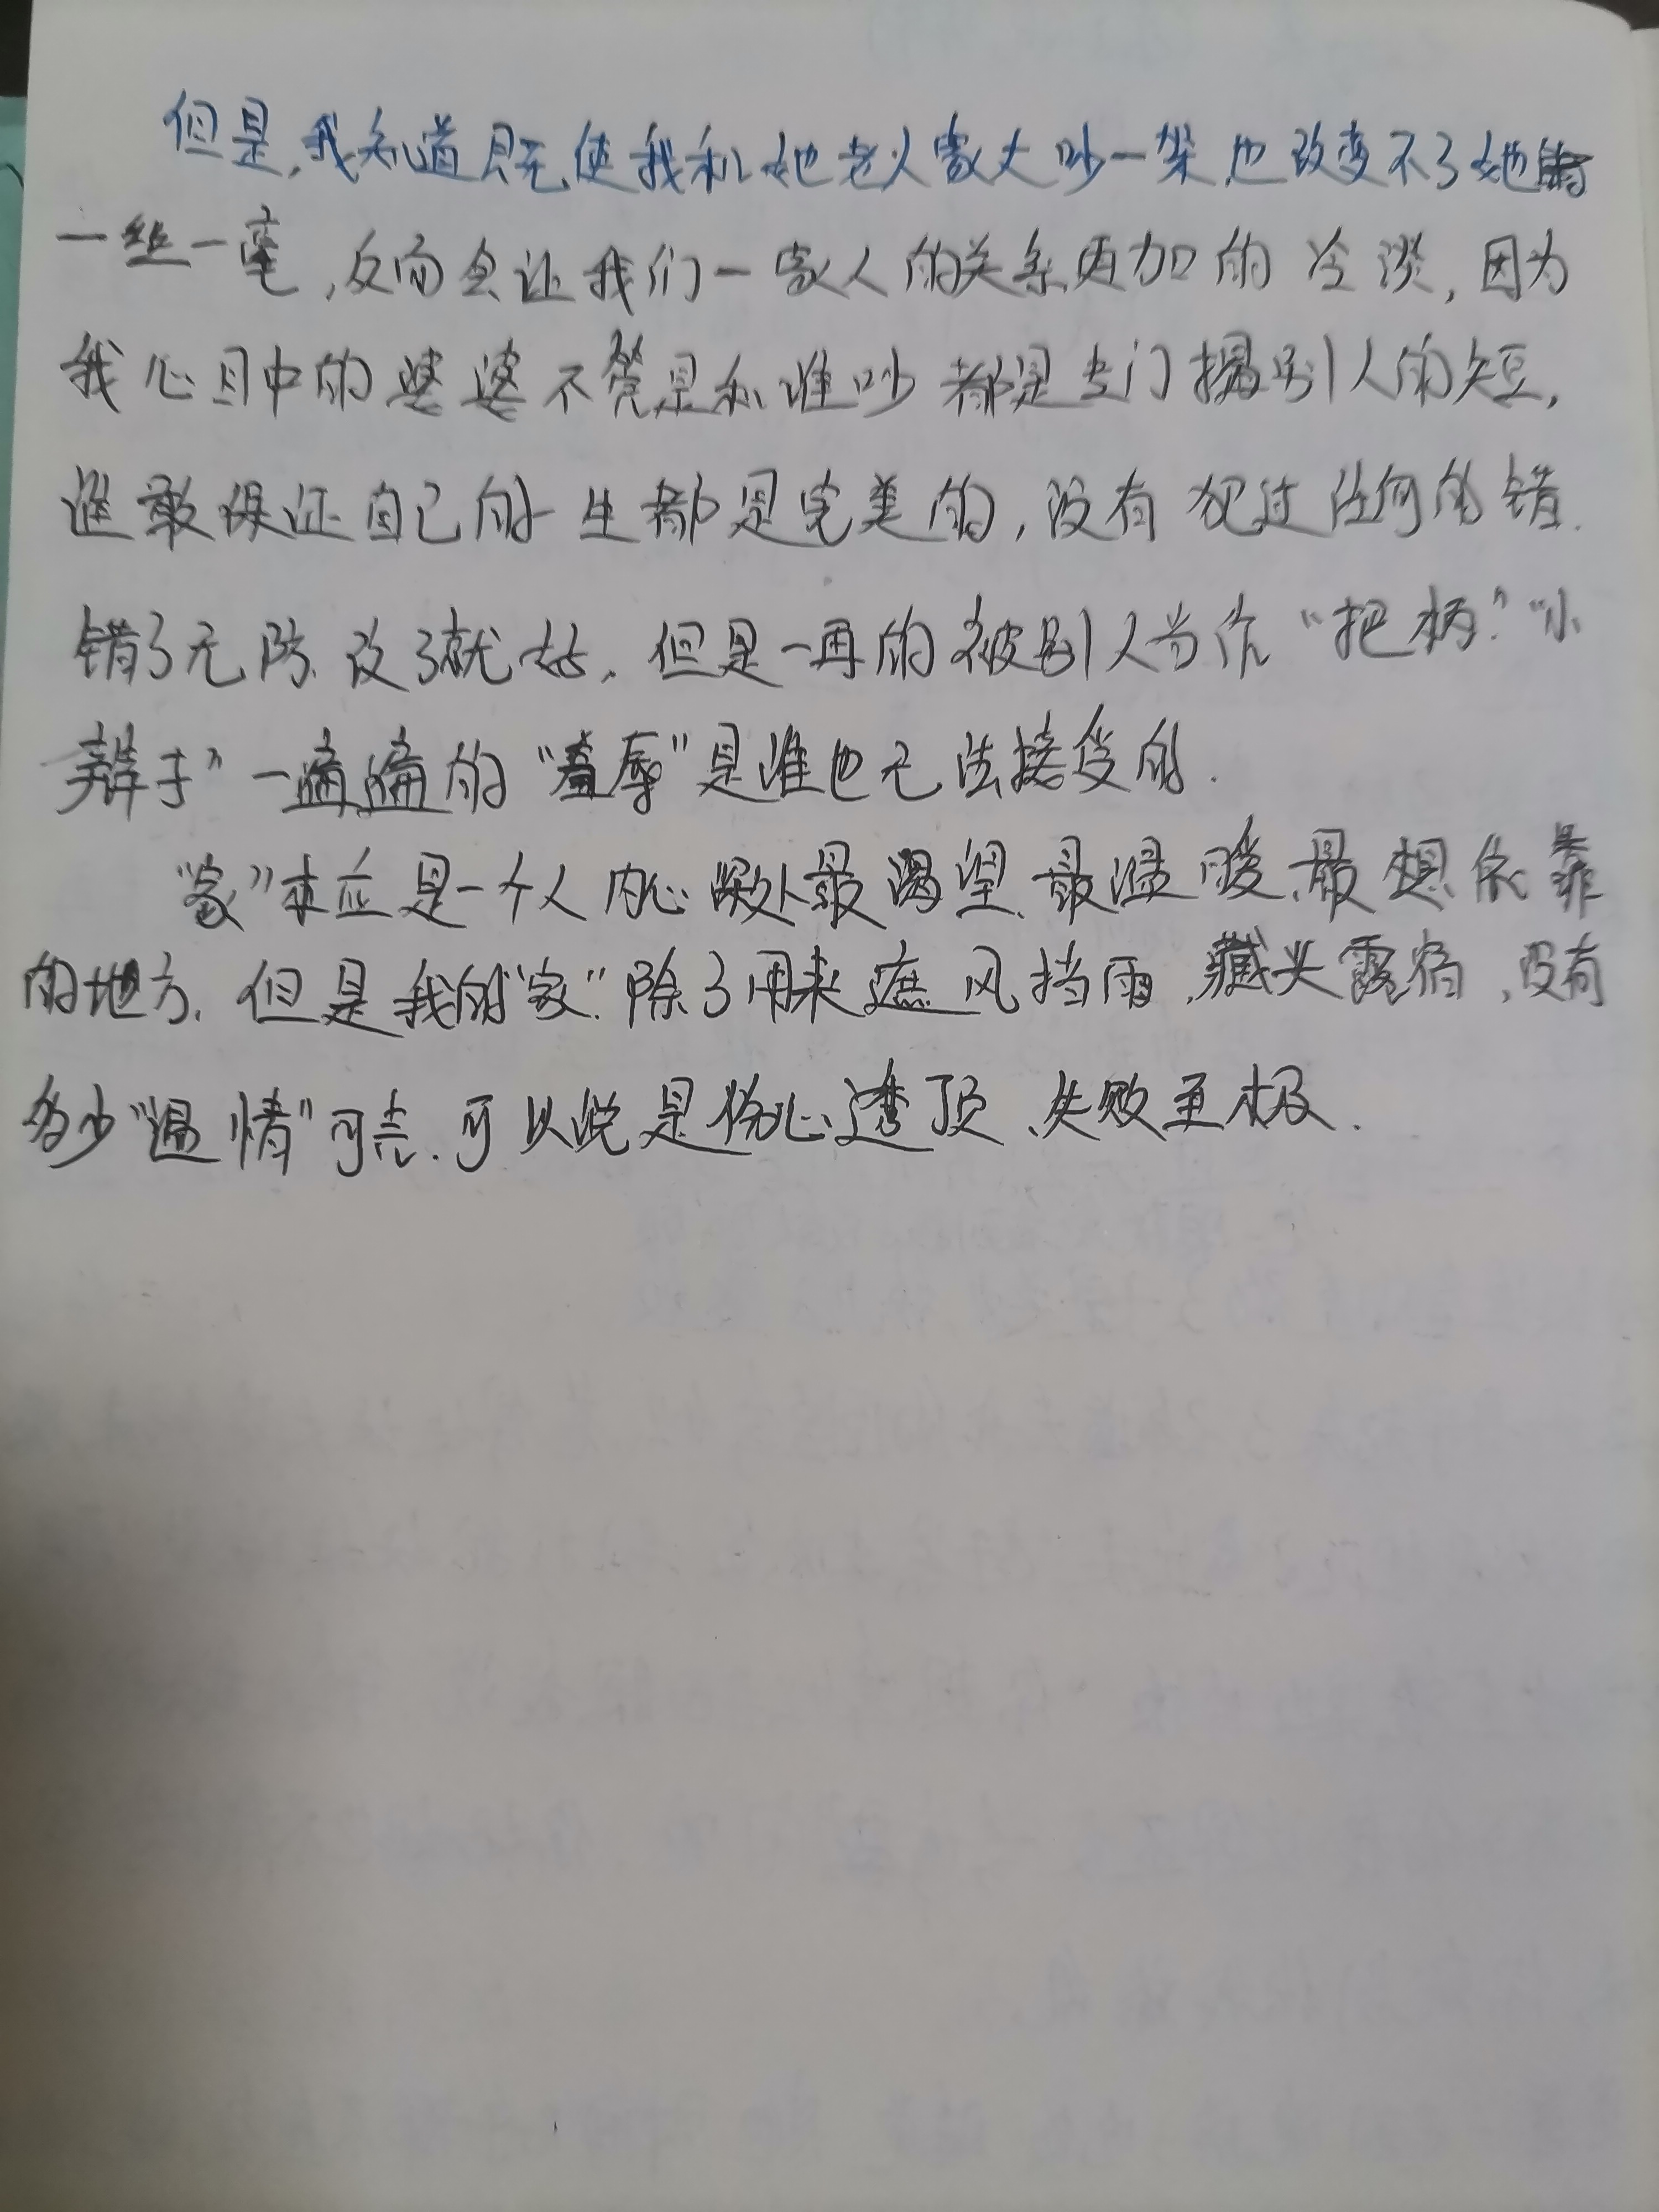 但是，我知道既使我和她老人家大吵一架，也改变不了她的
一丝一毫，反而会让我们一家人的关系更加的冷淡，因为
我心目中的婆婆不管是和谁吵都是专门揭别人的短，
谁敢保证自己的一生都是完美的，没有犯过任何的错.
错了无防.改了就好.但是一再的被别人当作“把柄”.“小
辫子”一遍遍的“羞辱”是谁也无法接受的.
“家”本应是一个人内心深处最渴望、最温暖、最想依靠
的地方.但是我的“家”.除了用来遮风挡雨，藏头露宿，没有
多少“温情”可言.可以说是伤心透顶、失败至极.